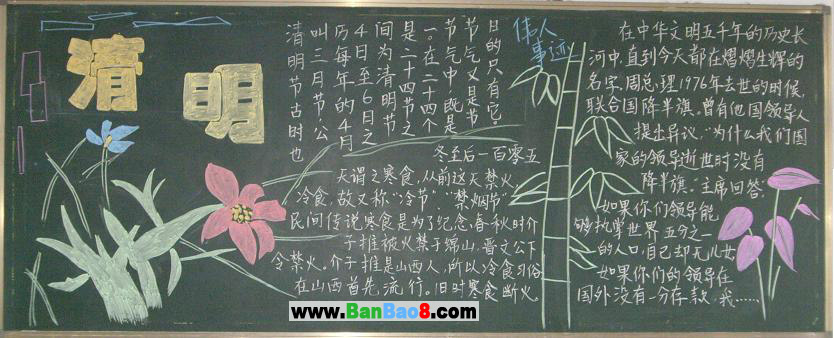 清明
清明节古时也
叫三月节公
历每年的4月
4日至6日之
间为清明节
是二十四节之
一。在二十四个
节气中,既是
节气又是节
日的只有它。
冬至后一百零五
天谓之寒食,从前这天禁火,
冷食,故又称“冷节”“禁烟节”
民间传说寒食是为了纪念春秋时介
子推被火焚于绵山,晋文公下
令禁火。介子推是山西人,所以冷食习俗
在山西首先流行。旧时寒食断火,
伟人
事迹
在中华文明五千年的历史长
河中,直到今天都在熠熠生辉的
名字,周总理1976年去世的时候,
联合国降半旗。曾有他国领导人
提出异议,“为什么我们国
家的领导逝世时没有
降半旗。主席回答:
如果你们领导能
够执掌世界五分之一
的人口,自己却无儿女,
如果你们的领导在
国外没有一分存款,我……
www.BanBao8.com